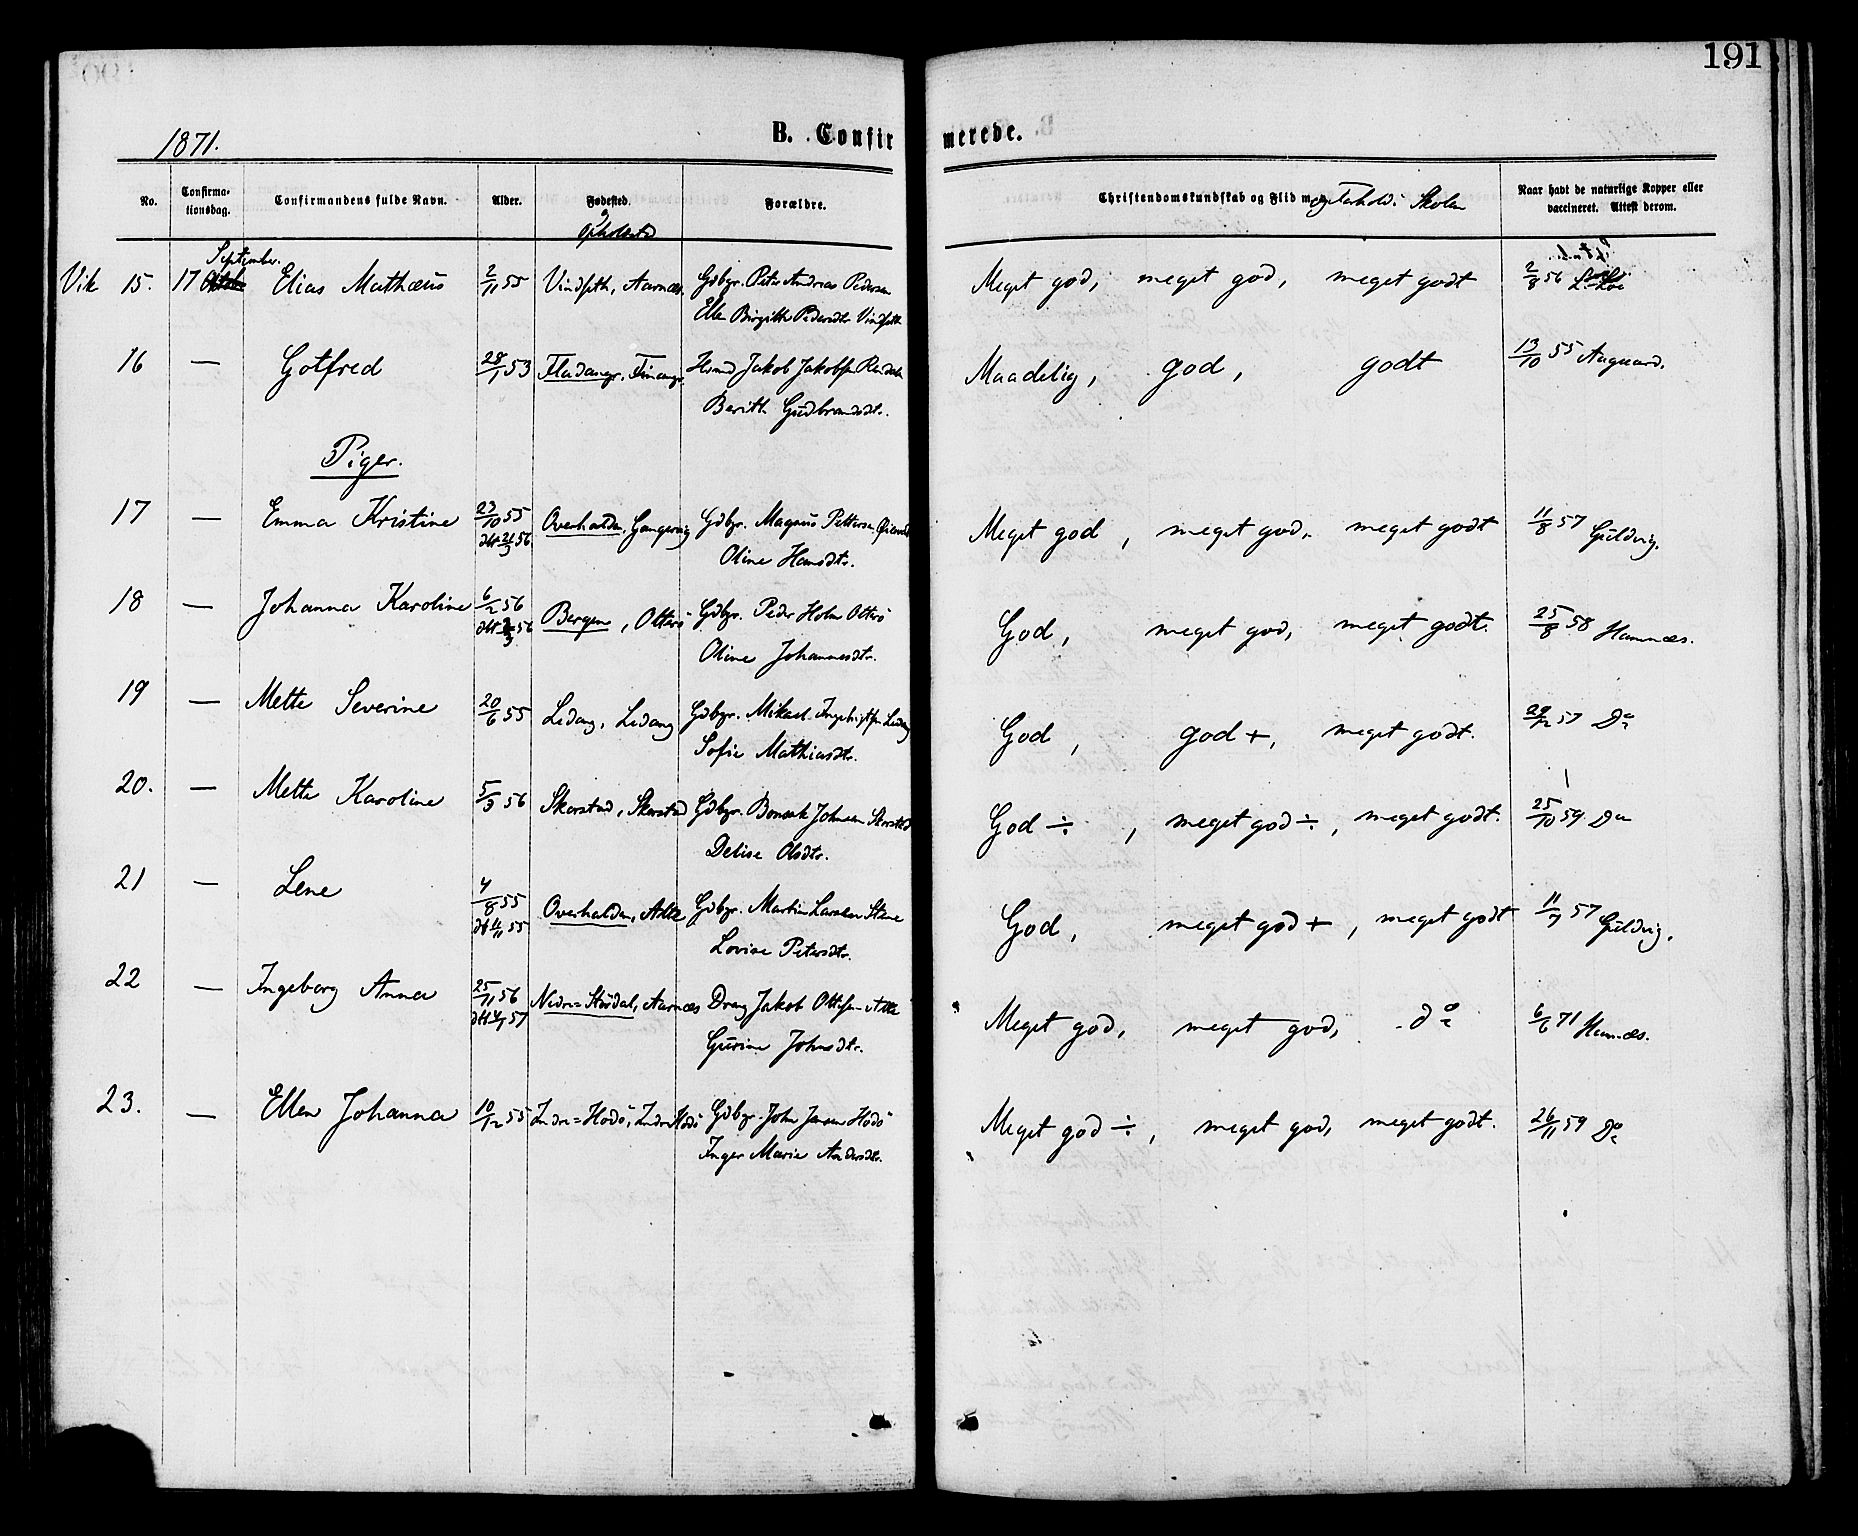 191
1871.
B. Confirmerede.
No.
Confirma-
tionsdag.
Confirmandens fulde Navn.
Alder.
Fødested.
Opholdsted
Forældre.
Christendomskundskab og Flid og Forhold i Skolen
Naar havt de naturlige Kopper eller
vaccineret. Attest derom.
September.
Vik 15. 17 Elias Mathæus 2/11 55 Vindseth, Aarnæs. Gdbgr. Peter Andreas Pedersen Meget god, meget god, meget godt 2/8 56
Ellen Birgitte Pedersdtr Vindseth
16 — Gotfred 28/1 53 Fladanger, Finanger Hsmd Jakob Jakobsen Maadelig, god, godt 13/10 55 Aagaard.
Berith Gudbrandsdtr.
Piger.
17 — Emma Kristine 23/10 55 Overhalden, Gangsvig Gdbgr. Magnus Pettersen Meget god, meget god, meget godt 11/8 57 Guldvig.
dbt 21/3 56 Oline Hansdtr.
18 — Johanna Karoline 6/2 56 Bergen, Otterö Gdbgr. Peder Holm Otterö God, meget god, meget godt. 25/8 58 Hamnæs.
Oline Johannesdtr.
19 — Mette Severine 20/6 55 Ledang, Ledang Gdbgr. Mikael Ingebrigtsen Ledang God, god +, meget godt. 57 Do
Sofie Mathiasdtr.
20. — Mette Karoline 5/3 56 Skorstad, Skorstad Gdbgr. Bonsak Johnsen Skorstad God ÷, meget god ÷, meget godt. 25/10 59 Do
Delise Olsdtr.
21 — Lene 4/8 55 Overhalden, Alte Gdbgr. Martin Larsen Stene God, meget god +, meget godt 11/7 57 Guldvig.
dbt 4/11 55 Lovise Petersdtr.
22 — Ingeborg Anna 25/11 56 Nedre=Stördal, Aarnæs Dreng Jakob Ottesen Alte Meget god, meget god, do 6/6 71 Hamnæs.
Gurine Johnsdtr.
23. — Ellen Johanna 10/12 55 Indre=Hodö, Indre Hodö Gdbgr. John Jensen Hodö Meget god ÷, meget god, meget godt. 26/11 59 Do
Inger Marie Andersdtr.